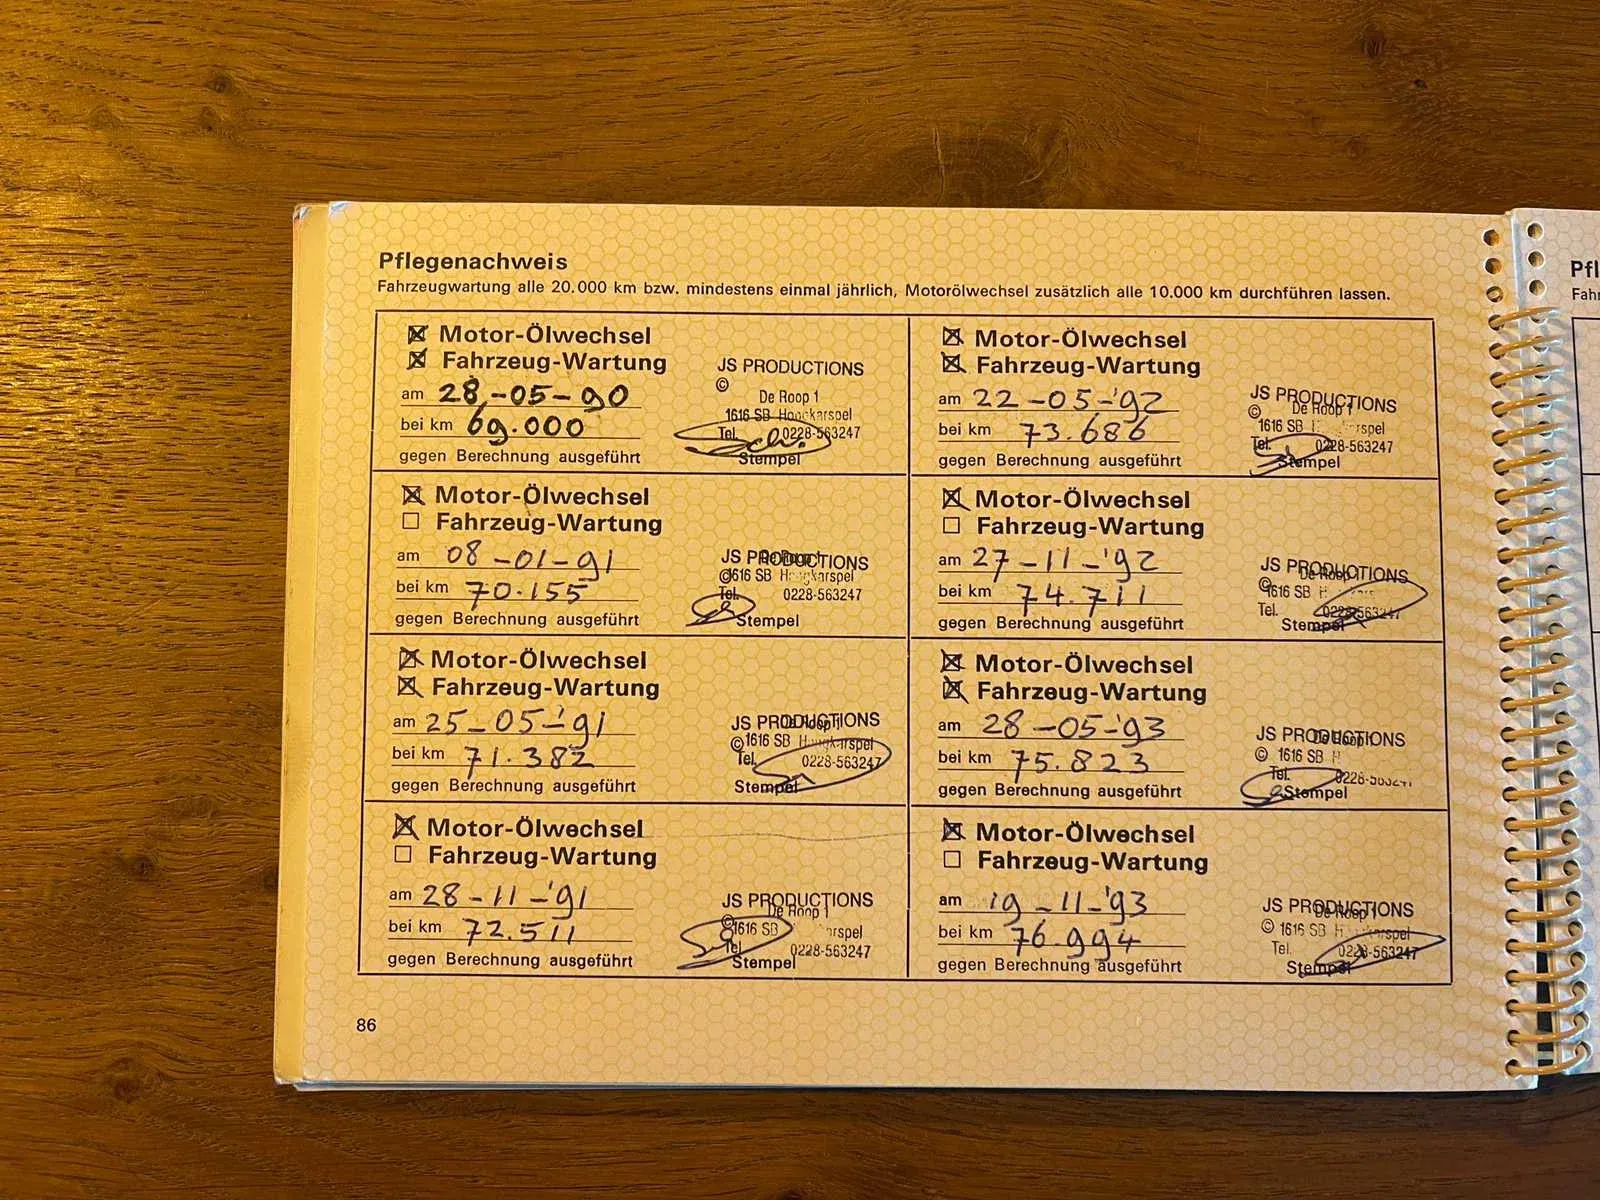 Pflegenachweis
Fahrzeugwartung alle 20.000 km bzw. mindestens einmal jährlich, Motorölwechsel zusätzlich alle 10.000 km durchführen lassen.
Motor-Ölwechsel
Fahrzeug-Wartung
am 28-05-90
bei km 69.000
gegen Berechnung ausgeführt
JS PRODUCTIONS
©
De Roop 1
1616 SB Hoogkarspel
Tel. 0228-563247
Stempel
Motor-Ölwechsel
Fahrzeug-Wartung
am 08-01-91
bei km 70.155
gegen Berechnung ausgeführt
JS PRODUCTIONS
De Roop 1
© 1616 SB Hoogkarspel
Tel. 0228-563247
Stempel
Motor-Ölwechsel
Fahrzeug-Wartung
am 25-05-'91
bei km 71.382
gegen Berechnung ausgeführt
JS PRODUCTIONS
De Roop 1
© 1616 SB Hoogkarspel
Tel. 0228-563247
Stempel
Motor-Ölwechsel
Fahrzeug-Wartung
am 28-11-'91
bei km 72.511
gegen Berechnung ausgeführt
JS PRODUCTIONS
De Roop 1
© 1616 SB
Tel. 0228-563247
Stempel
Motor-Ölwechsel
Fahrzeug-Wartung
am 22-05-'92
bei km 73.686
gegen Berechnung ausgeführt
JS PRODUCTIONS
© De Roop 1
1616 SB
Tel. 0228-563247
Stempel
Motor-Ölwechsel
Fahrzeug-Wartung
am 27-11-'92
bei km 74.711
gegen Berechnung ausgeführt
JS PRODUCTIONS
De Roop 1
© 1616 SB
Tel. 0228-563247
Stempel
Motor-Ölwechsel
Fahrzeug-Wartung
am 28-05-'93
bei km 75.823
gegen Berechnung ausgeführt
JS PRODUCTIONS
De Roop 1
© 1616 SB
Tel. 0228-563247
Stempel
Motor-Ölwechsel
Fahrzeug-Wartung
am 19-11-'93
bei km 76.994
gegen Berechnung ausgeführt
JS PRODUCTIONS
De Roop 1
© 1616 SB
Tel. 0228-563247
Stempel
86
Pfl
Fahr